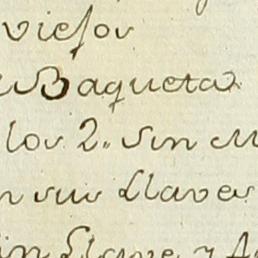 viejos
Baqueta
los 2. sin
sus Llaves
Llave y